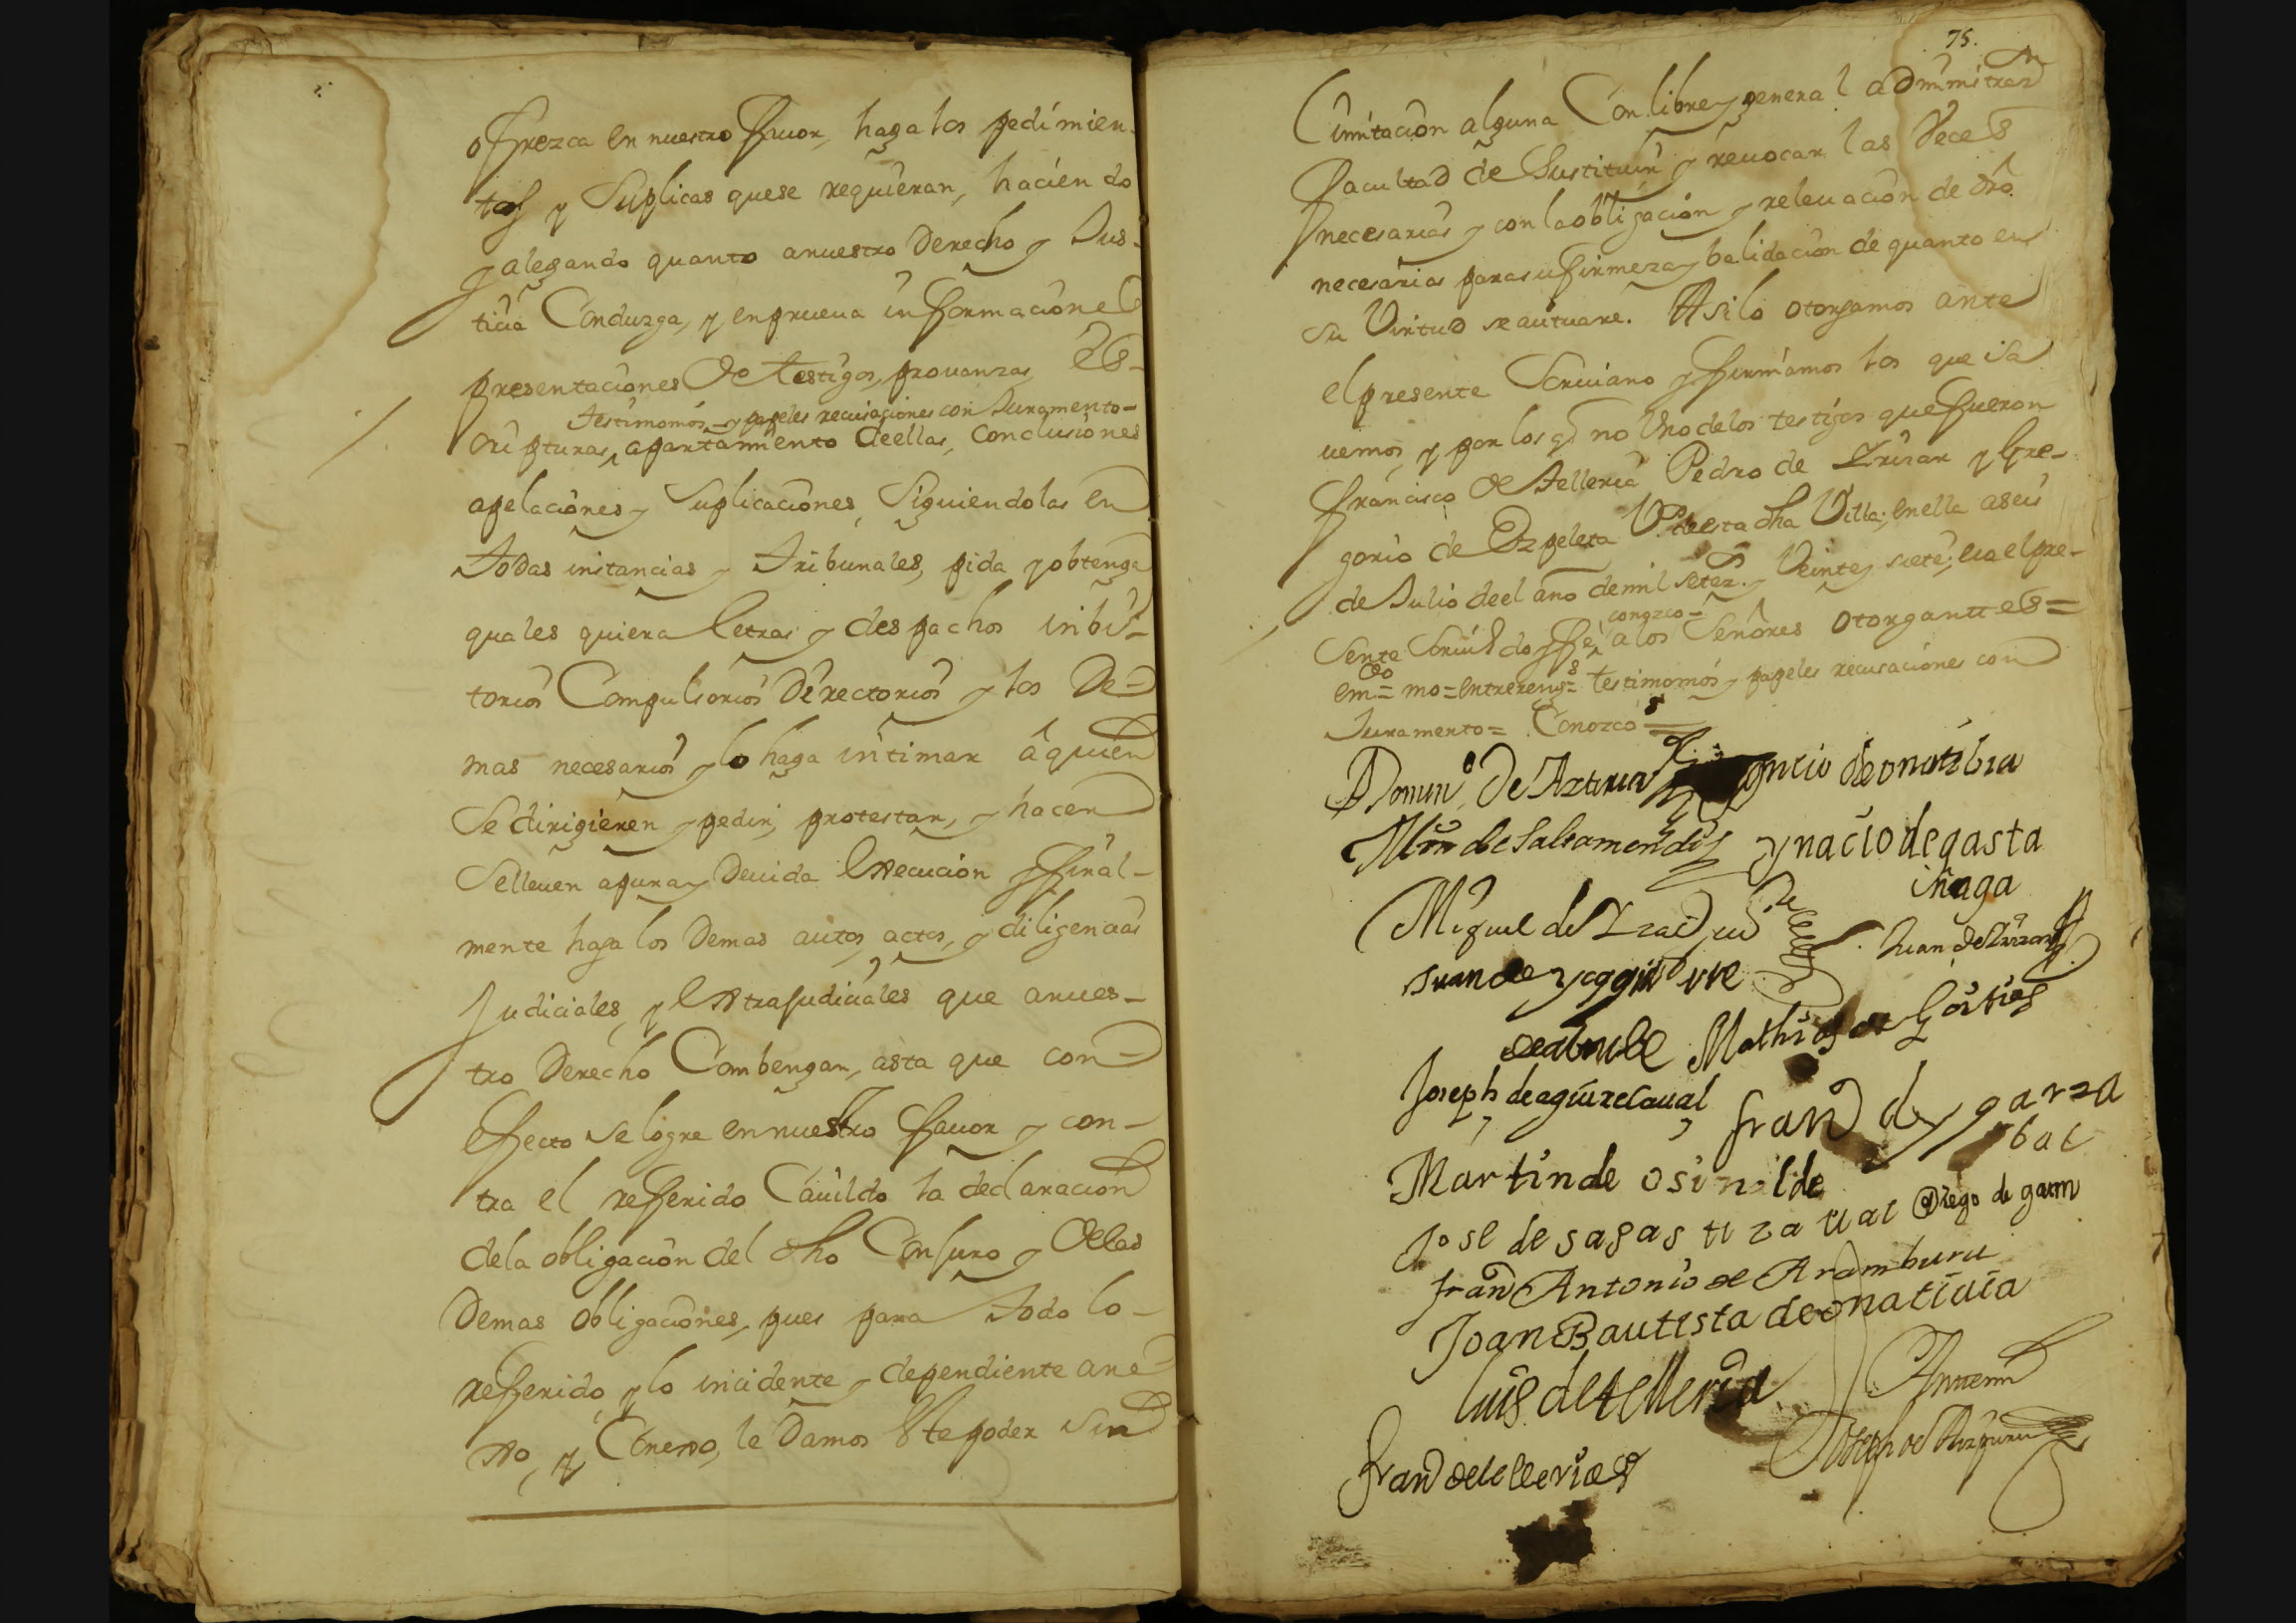 ofrezca en nuestro fauor, haga los pedimien-
tos y Suplicas quese requieran, haciendo
y alegando quanto anuestro Derecho y Jus-
ticia Conduzga, y enprueua informaciones
presentaciones de testigos, prouanzas Es-
testimonios y papeles recusaciones con Juramento-
cripturas, apartamiento deellas, Conclusiones
apelaciones y Suplicaciones, Siguiendolas en
todas instancias y Tribunales, pida y obtenga
quales quiera letras y despachos inbi-
torios Compulsorios Directorios y los De-
mas necesarios y lo haga intimar á quien
Se dirigieren y pedir, protestar, y hacer
Selleuen apura y Deuida Execución y final-
mente haga los Demas autos, actos, y diligencias
Judiciales, y Extrajudiciales que anues-
tro Derecho Combengan, asta que con
efecto se logre en nuestro fauor y con-
tra el refferido Cauildo la declaración
dela obligación del dho Conjuro y dellas
Demas obligaciones, pues para todo lo-
refferido, y lo incidente y dependiente ane-
xo, y Conexo, le Damos Este poder sin
75.
Limitación alguna Con libre y general administraon
facultad de Sustituir y reuocar las Veces
necesarias y con la obligación y releuación de dro
necesarias para su firmeza y balidación de quanto en
su Virtud se autuare. Asilo otorgamos ante
el presente Scriuano y firmamos los que sa
uemos, y por los q no Vno delos testigos que fueron
Francisco de Telleria Pedro de Yrizar y Gre-
gorio de Ezpeleta Vs deesta dha Villa, en ella aseis
de Julio de el año demil setezs y Veinte y siete, en el pre-
conozco-
sente Scriuo doy fe, a los Señores otorganttes=
do
em= mo=entrerengs= testimonios y papeles recusaciones con
Juramento= Conozco
Domino de Azttiria
Ygnacio de onatibia
Mrn de Salsamendi
ynacio de gasta
iñaga
Miguel de
Juan de Yrizar
Juan de yzaguirre
Mathias de Goitia
Joseph de aguirrezaual
Fran de ygarza
bal
Martin de osinalde
Jose de sagastizaual
Diego de garm
Fran Antonio de Aramburu
Joan Bautista de onatiuia
Luis de telleria
Antemi
Fran de telleria
Joseph de Aizpuru